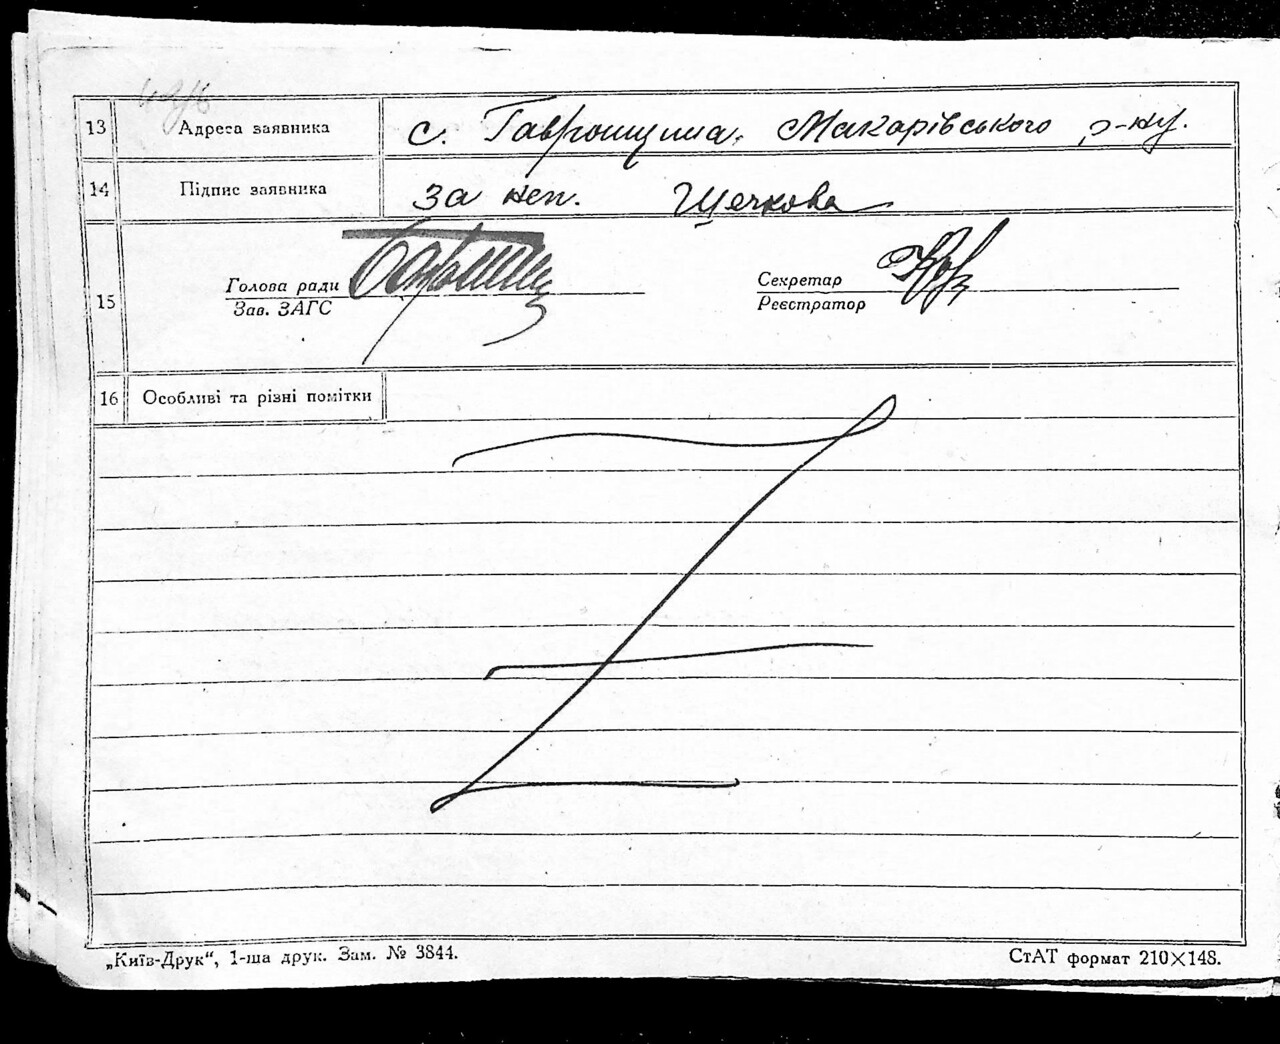 13 Адреса заявника с. Гавронщина, Макарівського р-ну.
14 Підпис заявника за неп. Щечкова
Голова ради Секретар
15 Зав. ЗАГС Реєстратор
16 Особливі та різні помітки
„Київ-Друк“, 1-ша друк. Зам. № 3844. СтАТ формат 210×148.